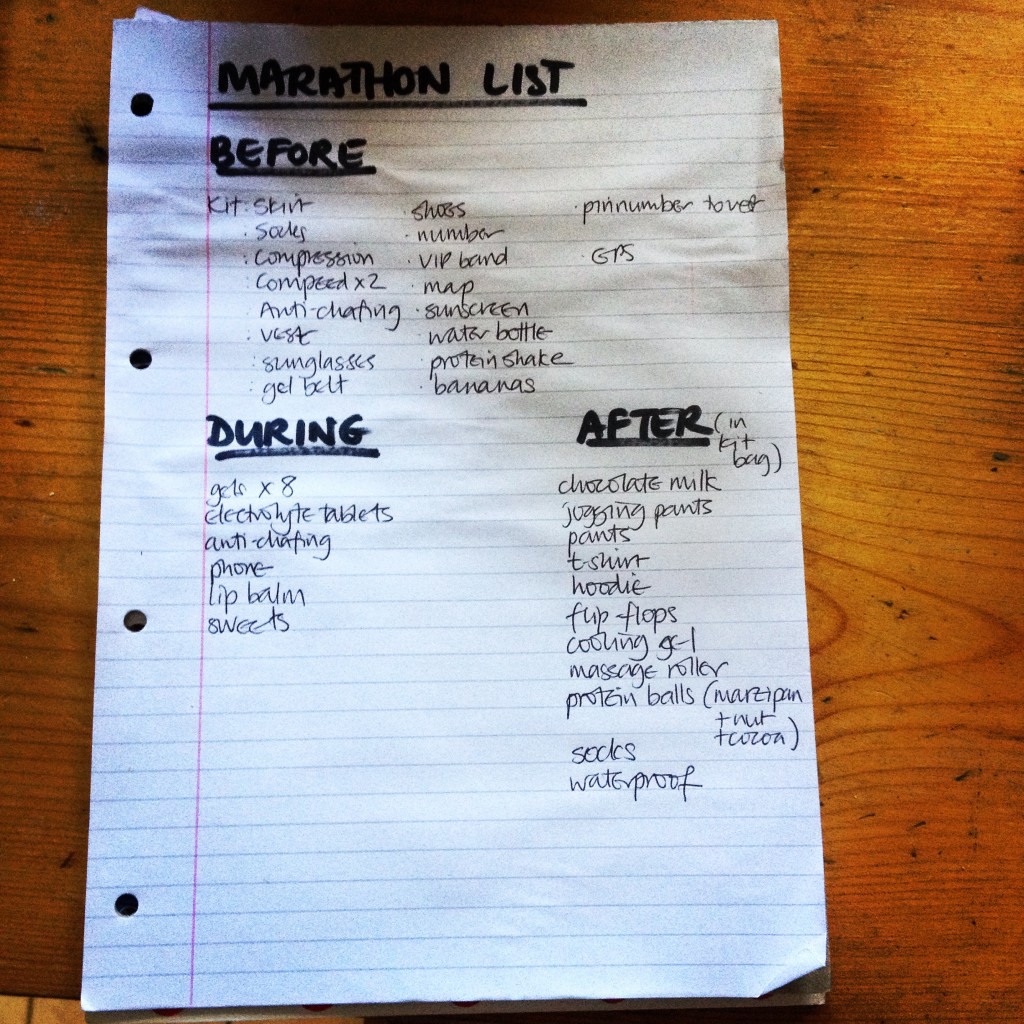 MARATHON LIST
BEFORE
Kit: Skirt
: Socks
: Compression
: Compeed x2
Anti-chafing
: vest
: sunglasses
: gel belt
· shoes
· number
· VIP band
· map
· sunscreen
· water bottle
· protein shake
· bananas
· pin number to vest
· GPS
DURING
gels x 8
electrolyte tablets
anti-chafing
phone
lip balm
sweets
AFTER (in
kit
bag)
chocolate milk
jogging pants
pants
t-shirt
hoodie
flip-flops
cooling gel
massage roller
protein balls (marzipan
+nut
+cocoa)
socks
waterproof